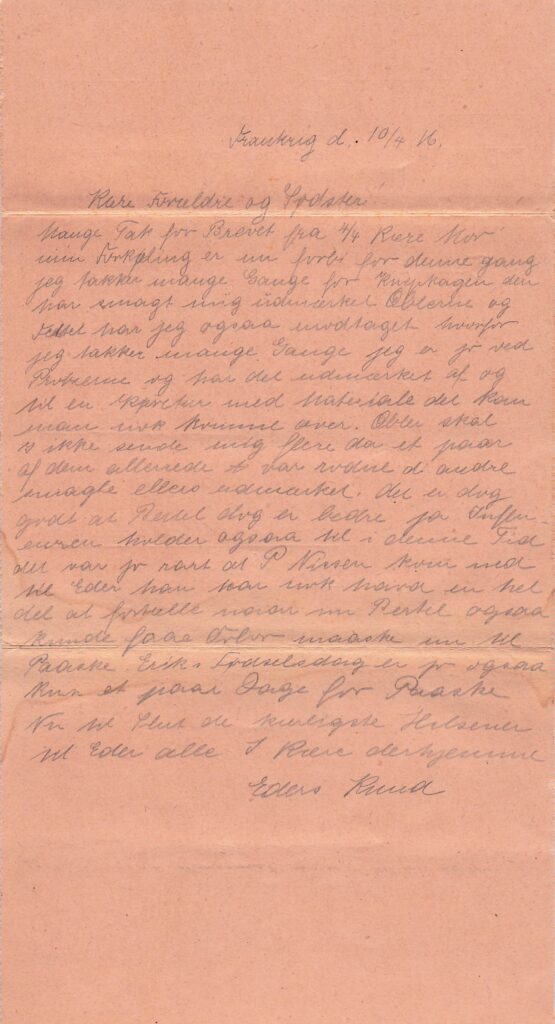 Frankrig d. 10/4 16.
Kære Forældre og Sødster
Mange Tak for Brevet fra 4/4 Kære Mor
min Forkøling er nu forbi for denne gang
jeg takker mange Gange for Knepkagen den
har smagt mig udmærket Æblerne og
har jeg ogsaa modtaget hvorfor
jeg takker mange Gange jeg er jo ved
Proberne og har det udmærket af og
til en med Materiale det kan
man nok komme over. Æbler skal
I ikke sende mig flere da et paar
af dem allerede var rodne d andre
smagte ellers udmærket. det er dog
godt at Bertel dog er bedre ja Influ-
enzen holder ogsaa til i denne Tid
det var jo rart at P Nissen kom ned
til Eder han har nok havd en hel
del at fortælle naar nu Bertel ogsaa
kunde faae Orlov maaske nu til
Paaske Eriks Fødselsdag er jo ogsaa
kun et paar Dage for Paaske
Nu til Slut de kærligste Hilsener
til Eder alle I Kære derhjemme
Eders Knud